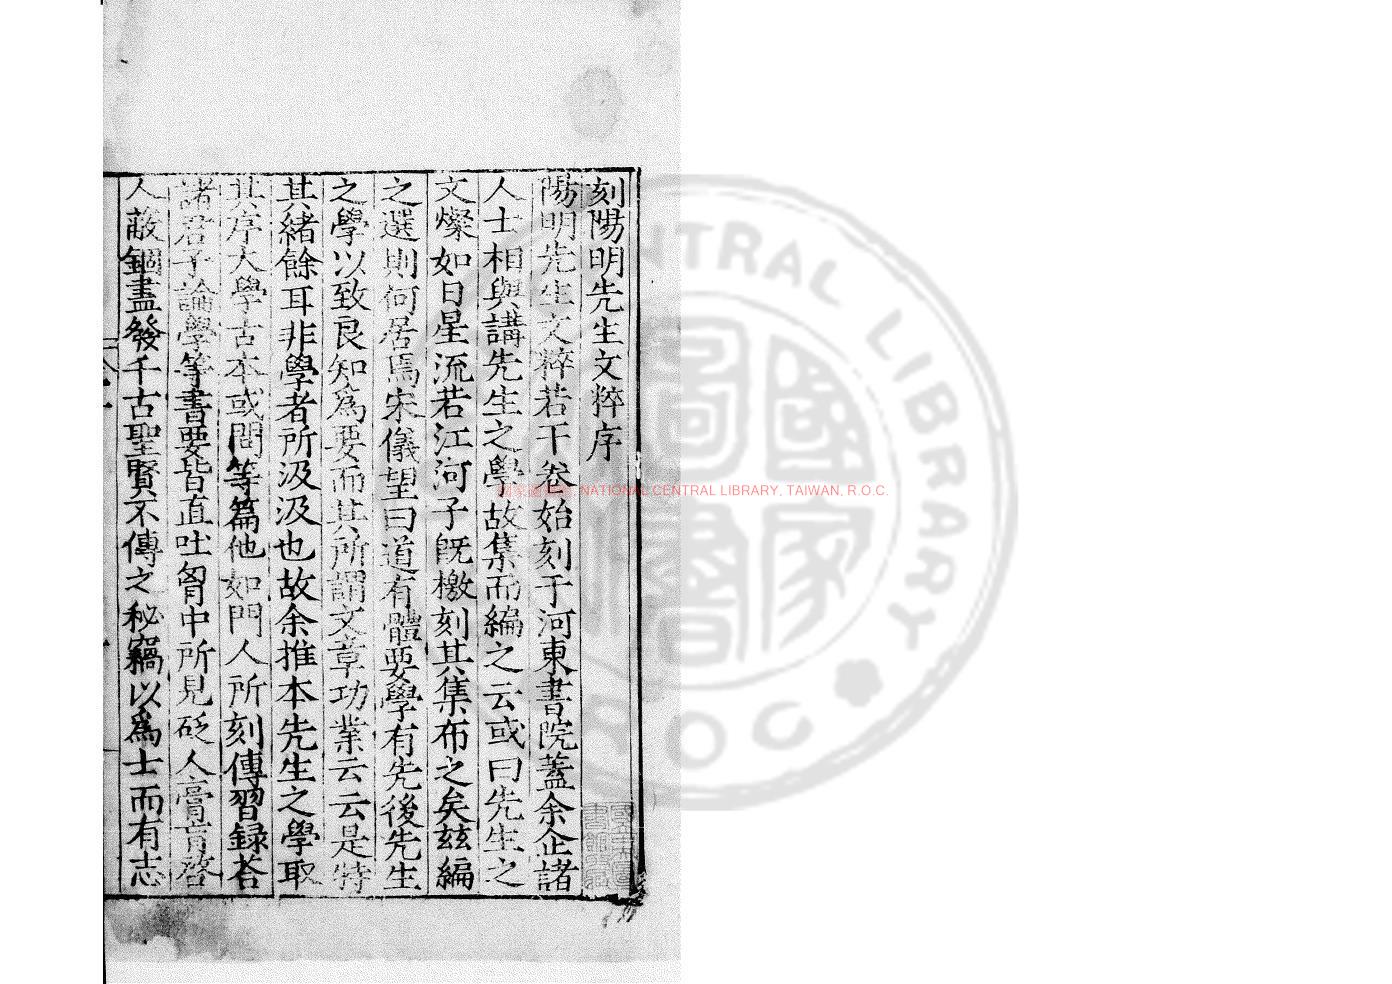 刻陽明先生文粹序
陽明先生文粹若干卷始刻于河東書院蓋余企諸
人士相與講先生之學故集而編之云或曰先生之
文燦如日星流若江河子旣檄刻其集布之矣玆編
之選則何居焉宋儀望曰道有體要學有先後先生
之學以致良知為要而其所謂文章功業云云是特
其緒餘耳非學者所汲汲也故余推本先生之學取
其序大學古本或問等篇他如門人所刻傳習録荅
諸君子論學等書要皆直吐胷中所見砭人膏肓啓
人蔽錮盡發千古聖賢不傳之秘竊以爲士而有志
國家圖書館 NATIONAL CENTRAL LIBRARY, TAIWAN, R.O.C.
CENTRAL LIBRARY
R.O.C.